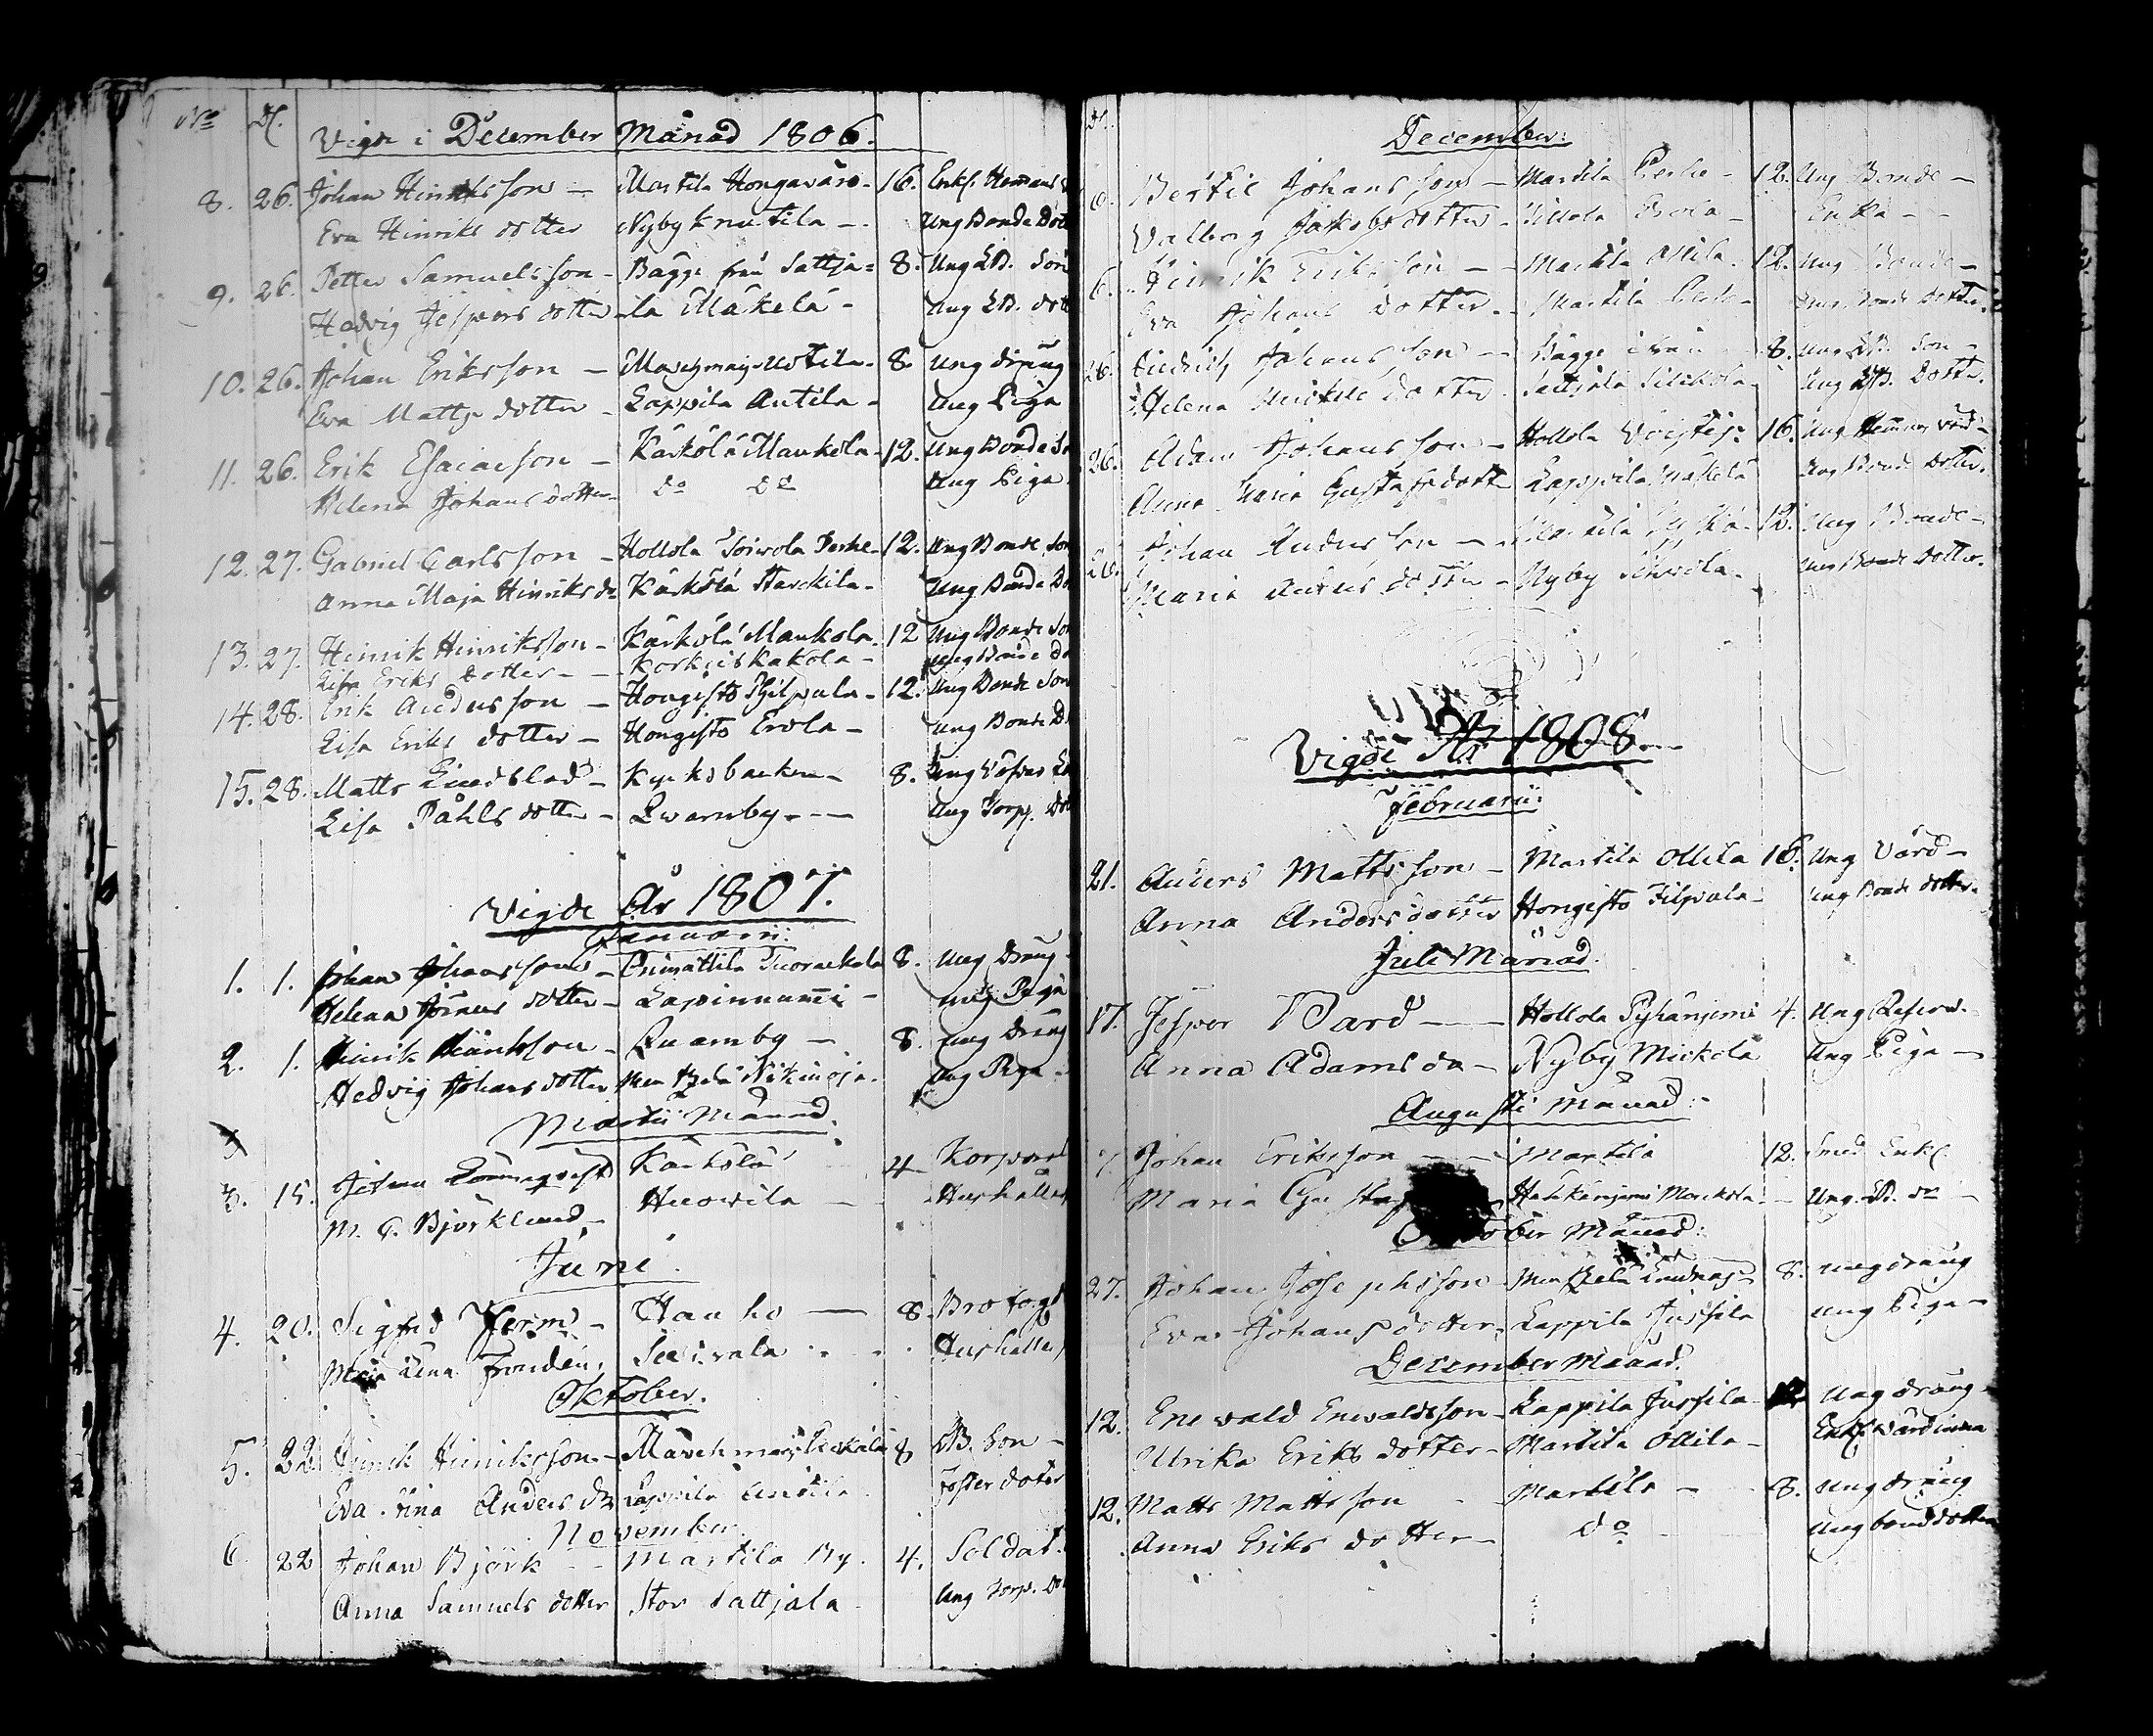 No D.
Vigde i December Månad 1806.
8. 26. Johan Hinriksson — Martila Hongavåro - 16. Enkl. Hemans
Eva Hinriks dotter Nyby Knutila — Ung Bonde Dott
9. 26. Petter Samuelsson - Bagge från Sattja= 8. Ung LB. Son
Hedvig Jespers dotter - la Mäkelä - Ung LB. dott
10. 26. Johan Eriksson — Uotila - 8. Ung dräng
Eva Matts dotter - Lappila Antila - Ung Piga
11. 26. Erik Esaiasson — Kärkölä Maukola - 12. Ung Bonde So
Helena Johans dotter - do do Ung Piga
12. 27. Gabriel Carlsson - Hollola Perhe - 12. Ung Bonde Son
Anna Maja Hinriks dr Kärkölä Harckila - Ung Bonde Do
13. 27. Hinrik Hinriksson - Kärkölä Maukola - 12 Ung Bonde Son
Lisa Eriks Dotter - - Korkeiskakola - Ung Bonde do
14. 28. Erik Andersson — Hongisto Philpula - 12. Ung Bonde Son
Lisa Eriks dotter — Hongisto Erola — Ung Bonde D
15. 28. Matts Lindblad - Kyrkobacken - 8. Ung
Lisa Påhls dotter - Qwarnby - - — Ung Torp. Dot
Vigde År 1807.
Januarii.
1. 1. Johan Johansson - Orimattila 8. Ung Dräng -
Helena Jörans dotter - Lapinnummi - Ung Piga
2. 1. Hinrik Hinriksson - Quarnby — 8. Ung Dräng
Hedvig Johans dotter Nikinoja - Ung Piga -
Martii Månad.
3. 15. Johan Lönnqvist Kärkölä 4 Korporal
M. C. Björklund - Huovila — - Hushåller
Juni.
4. 20. Sigfrid Ferm - Hauho — 8. Brofogd
Maja Lena Frondén, Hushåller
Oktober.
5. 22 Hinrik Hinriksson - 8 LB. Son —
Eva Stina Anders dr Lappila Anttila Foster doter
November.
6. 22 Johan Björk - - Martila By. 4. Soldat
Anna Samuels dotter Stor Sattjala - Ung Torp. Do
D.
December.
6. Bertil Johansson - Martila Perhe - 12. Ung Bonde —
Valborg Jakobs dotter - Enka - -
6. Hinrik Eriksson — - Martila Ollila - 12. Ung Bonde —
Eva Johans dotter - Martila Perhe - Ung Bonde Dotter.
26. Fredrich Johansson — - Bagge ifrån 8. Ung LB. Son -
Helena Michels dotter - Sattjala - Ung LB. Dotter.
26. Adam Johansson - Hollola 16. Ung Hemmans värd -
Anna Maria Gustafsdotter Lappila Mäkelä Ung Bonde Dotter.
26. Johan Andersson - 12. Ung Bonde -
Maria Anders dotter - Nyby Ung Bonde Dotter.
Vigde År 1808.
Februarii.
21. Anders Mattsson - Martila Ollila 16. Ung Värd -
Anna Anders dotter Hongisto Filpula - Ung Bonde dotter.
Juli Månad.
17. Jesper Bard — Hollola Pyhäniemi 4. Ung Reserv.
Anna Adams da - Nyby Mickola Ung Piga —
Augusti Månad:
7. Johan Eriksson — - Martila 12. Smed Enkl.
Maria Maukola - - Ung. LB. dr -
ober Månad:
27. Johan Josephsson - 8. ung dräng
Eva Johans dotter. Lappila Jussila Ung Piga -
December Månad.
12. Enevald Enevaldsson - Lappila Jussila - 12 Ung dräng -
Ulrika Eriks dotter - Martila Ollila - Enkl. Värdinna
12. Matts Mattsson - - Martila - - 8. Ung dräng
Anna Eriks dotter - do Ung bonddotter